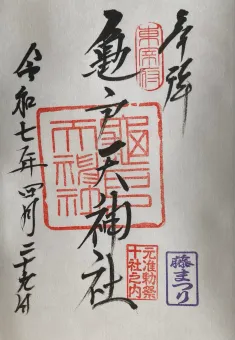 奉拝
東宰府
亀戸天神社
元准勅祭
十社之内
藤まつり
令和七年四月二十九日